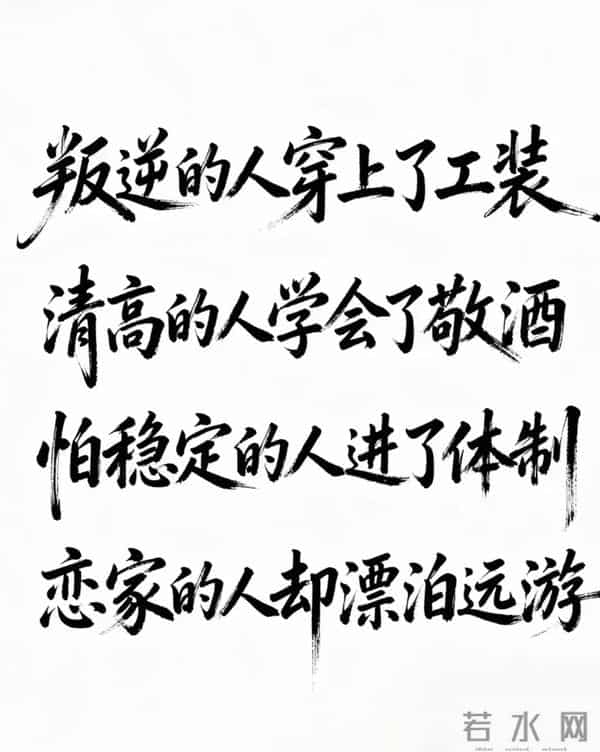 叛逆的人穿上了工装
清高的人学会了敬酒
怕稳定的人进了体制
恋家的人却漂泊远游
若水网